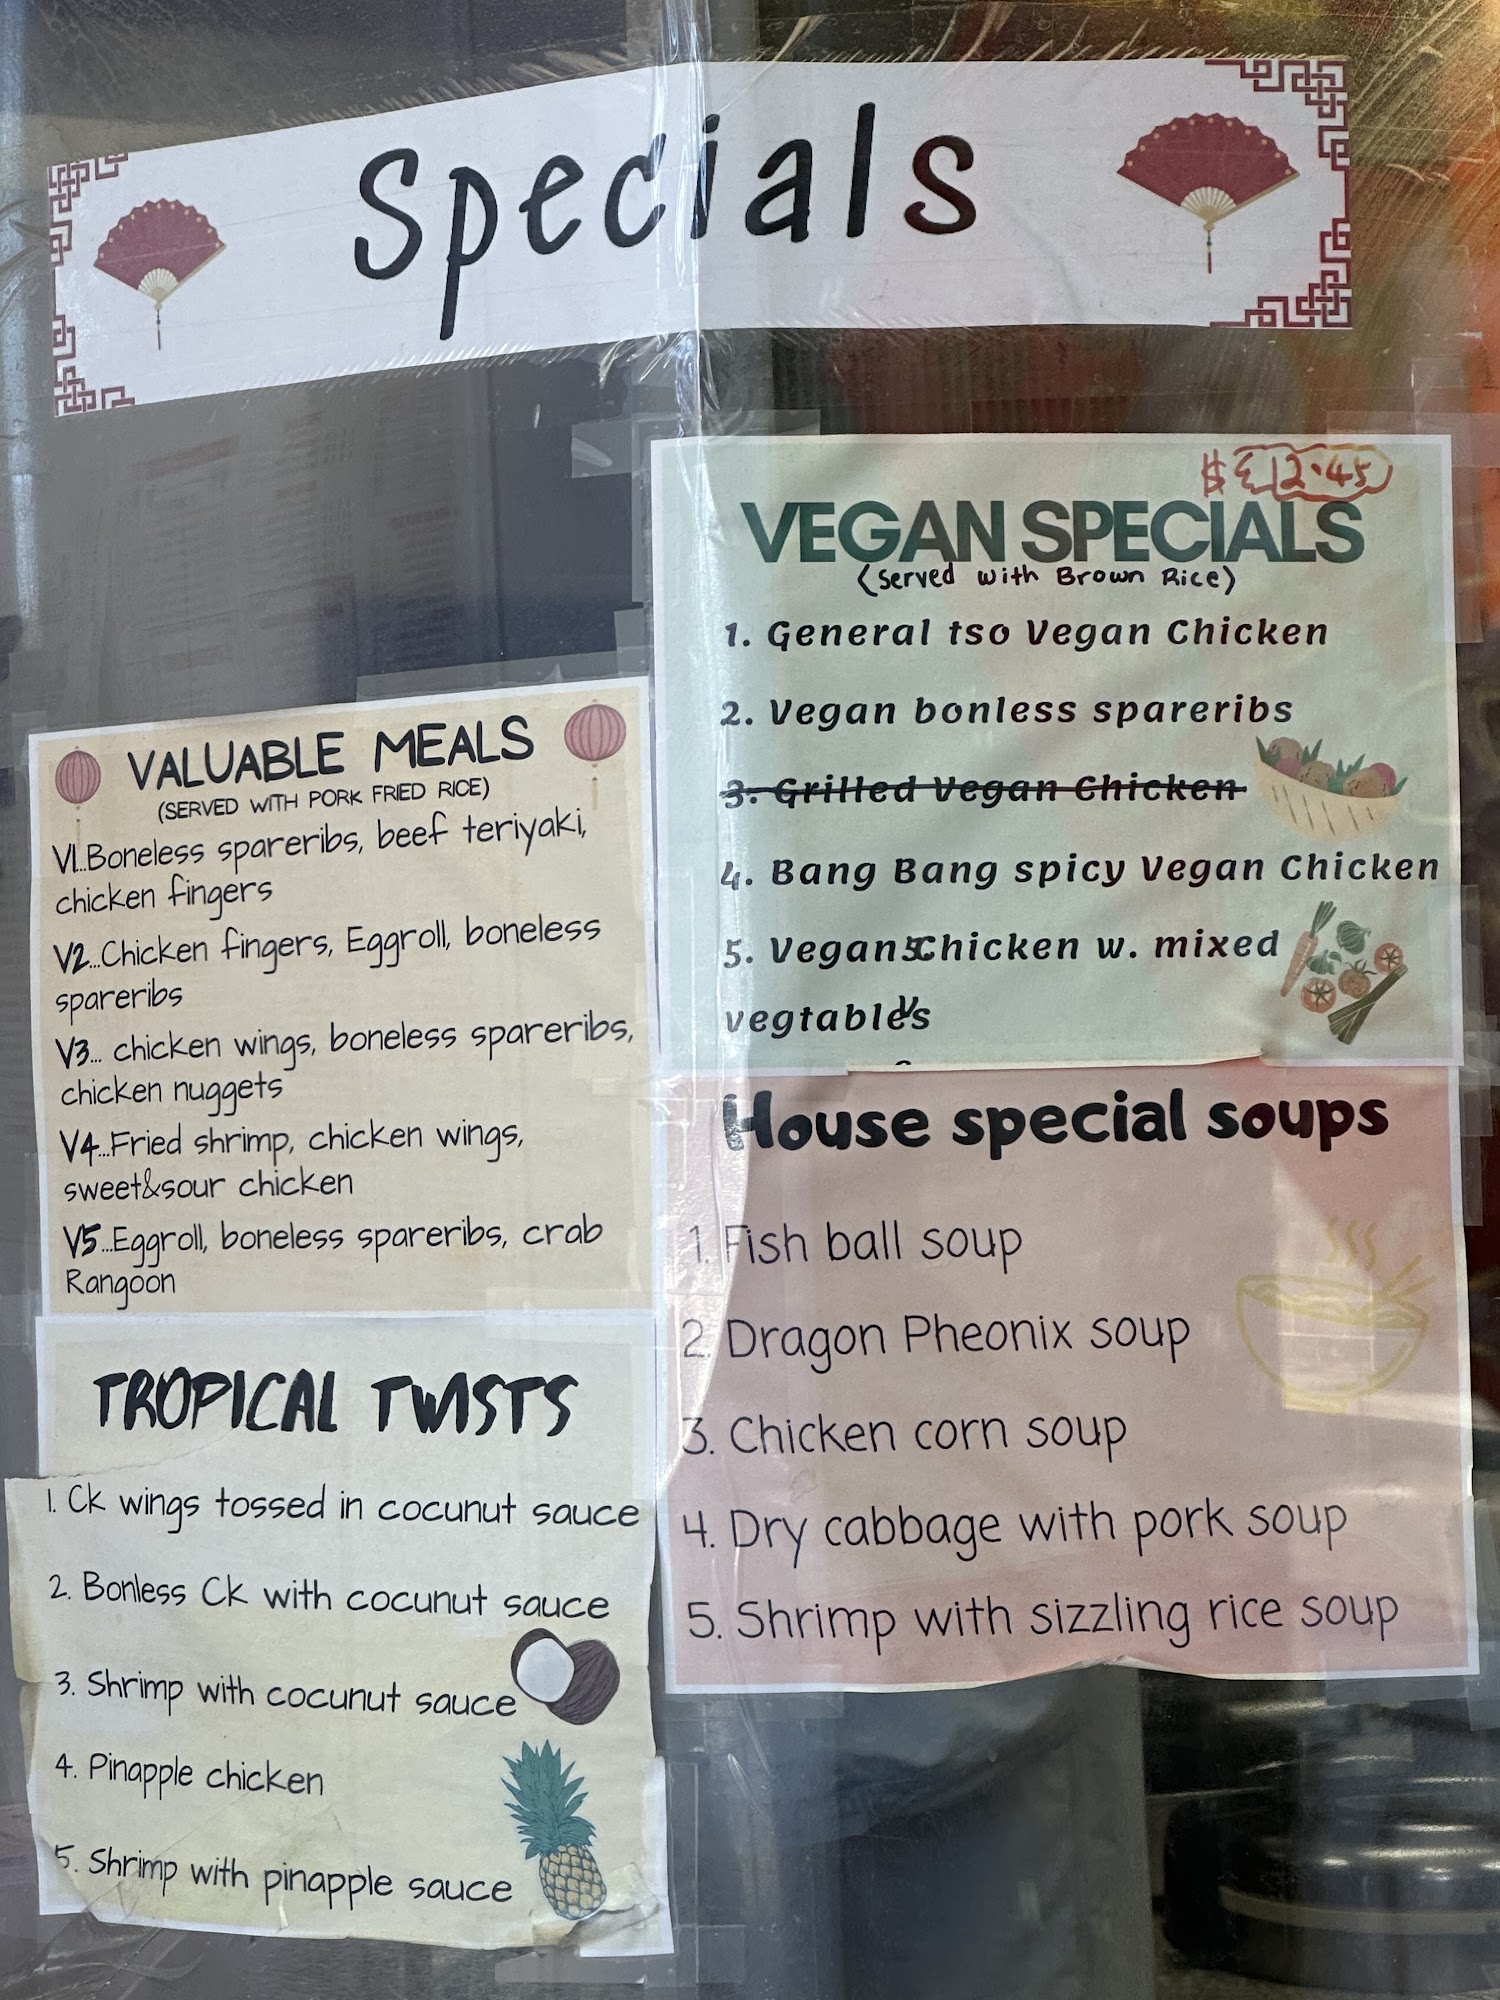 Specials
$12.45
VEGAN SPECIALS
(Served with Brown Rice)
1. General tso Vegan Chicken
2. Vegan bonless spareribs
3. Grilled Vegan Chicken
4. Bang Bang spicy Vegan Chicken
5. Vegan Chicken w. mixed
vegtables
VALUABLE MEALS
(SERVED WITH PORK FRIED RICE)
V1...Boneless spareribs, beef teriyaki,
chicken fingers
V2...Chicken fingers, Eggroll, boneless
spareribs
V3... chicken wings, boneless spareribs,
chicken nuggets
V4...Fried shrimp, chicken wings,
sweet&sour chicken
V5...Eggroll, boneless spareribs, crab
Rangoon
House special soups
1. Fish ball soup
2. Dragon Pheonix soup
3. Chicken corn soup
4. Dry cabbage with pork soup
5. Shrimp with sizzling rice soup
TROPICAL TWISTS
1. Ck wings tossed in cocunut sauce
2. Bonless Ck with cocunut sauce
3. Shrimp with cocunut sauce
4. Pinapple chicken
5. Shrimp with pinapple sauce